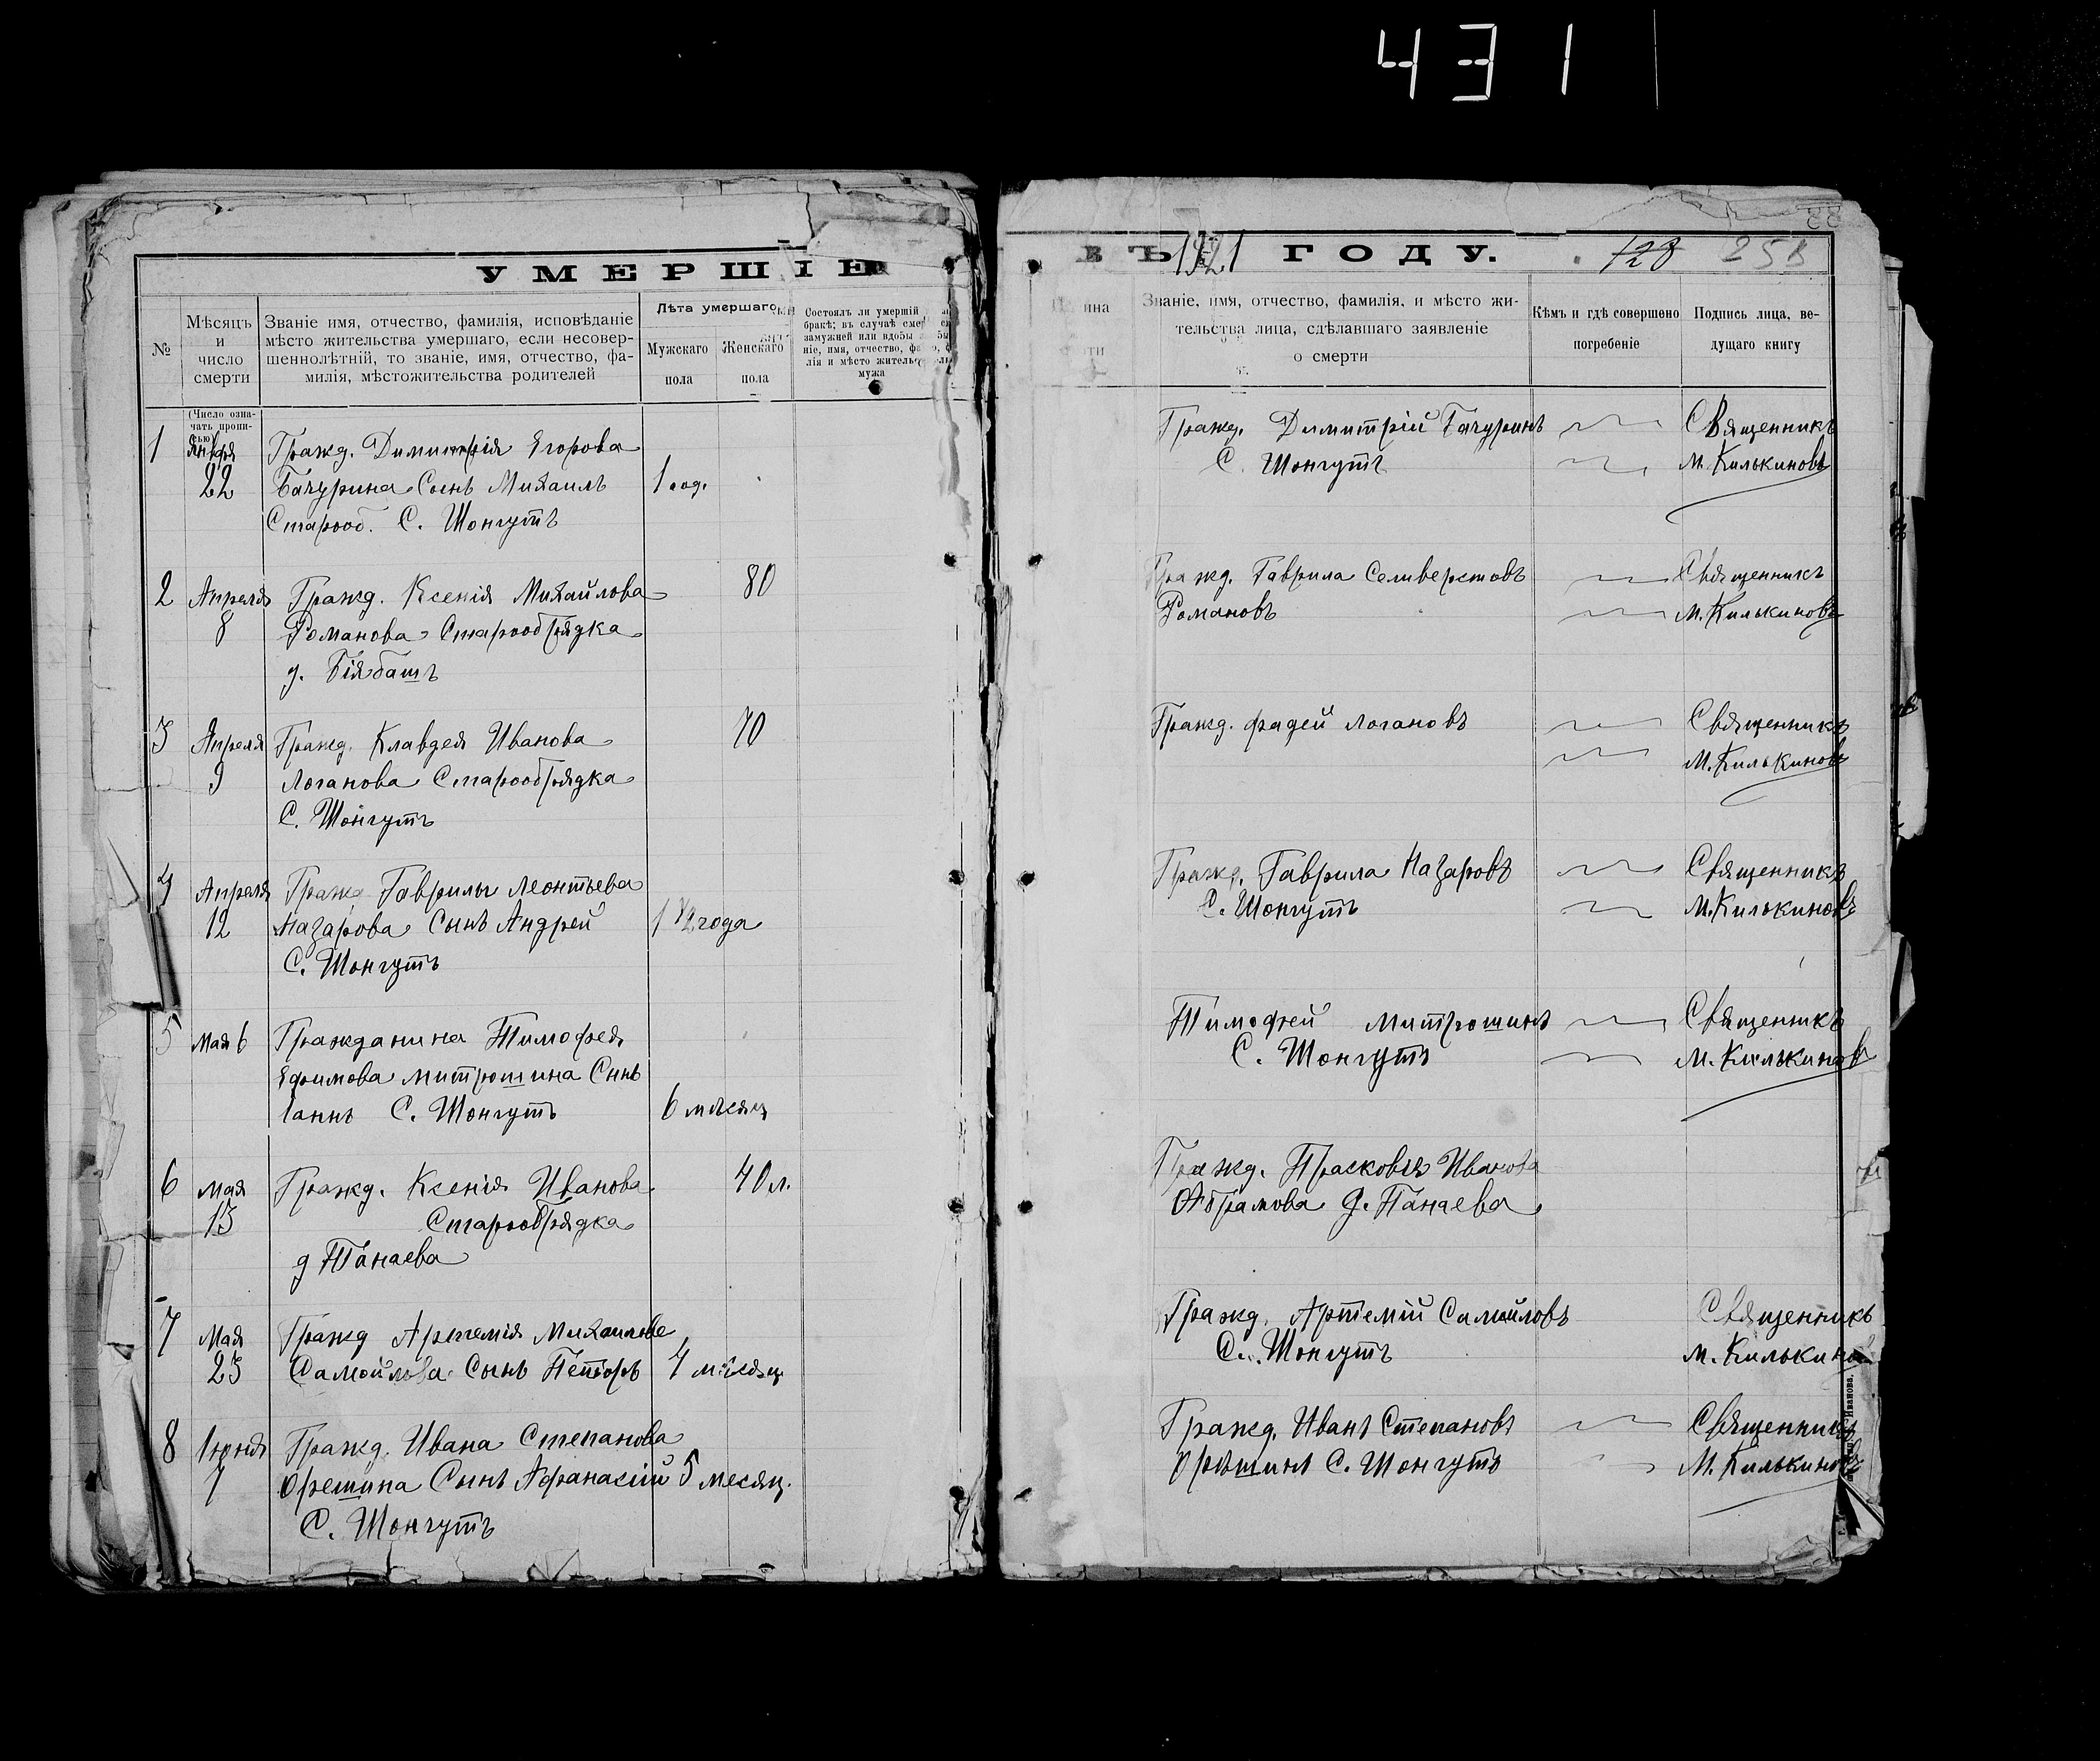 4 3 1
УМЕРШІЕ
№
Мѣсяцъ и число смерти
Званіе имя, отчество, фамилія, исповѣданіе
мѣсто жительства умершаго, если несовер-
шеннолѣтній, то званіе, имя, отчество, фа-
милія, мѣстожительства родителей
Лѣта умершаго
Мужскаго пола
Женскаго пола
Состоялъ ли умершій
бракѣ; въ случаѣ
замужней или вдовы
ніе, имя, отчество,
лія и мѣсто
мужа
(Число озна-
чать пропи-
сью)
1
Января
22
Гражд. Димитрія Егорова
Бачурина Сынъ Михаилъ
Старооб. С. Шонгутъ
1 год.
2
Апреля
8
Гражд. Ксенія Михайлова
Романова Старообрядка
д. Біябашъ
80
3
Апреля
9
Гражд. Клавдея Иванова
Логанова Старообрядка
С. Шонгутъ
70
4
Апреля
12
Гражд Гаврилы Леонтьева
Назарова Сынъ Андрей
С. Шонгутъ
1 1/2 года
5
Мая 6
Гражданина Тимофея
Ефимова Митрошина Сынъ
Іаннъ С. Шонгутъ
6 мѣсяц
6
Мая
13
Гражд. Ксенія Иванова
Старообрядка
д Танаева
40 л.
7
Мая
23
Гражд Артемія Михаилове
Самойлова Сынъ Петоръ
4 мѣсяц
8
Іюня
7
Гражд. Ивана Степанова
Орешина Сынъ Афанасій
С. Шонгутъ
5 месяц.
ВЪ 1921 ГОДУ.
128 258
Званіе, имя, отчество, фамилія, и мѣсто жи-
тельства лица, сдѣлавшаго заявленіе
о смерти
Кѣмъ и гдѣ совершено
погребеніе
Подпись лица, ве-
дущаго книгу
Гражд. Димитрій Бачуринъ
С. Шонгутъ
Священникъ
М. Килькиновъ
Гражд. Гаврила Селиверстовъ
Романовъ
Священникъ
М. Килькиновъ
Гражд. Фадей Логановъ
Священникъ
М. Килькиновъ
Гражд. Гаврила Назаровъ
С. Шонгутъ
Священникъ
М. Килькиновъ
Тимофей Митрошинъ
С. Шонгутъ
Священникъ
М. Килькиновъ
Гражд. Прасковія Иванова
Абрамова д. Панаева
Гражд. Артемій Самойловъ
С. Шонгутъ
Священникъ
М. Килькинов
Гражд. Иванъ Степановъ
Орѣшинъ С. Шонгутъ
Священникъ
М. Килькиновъ